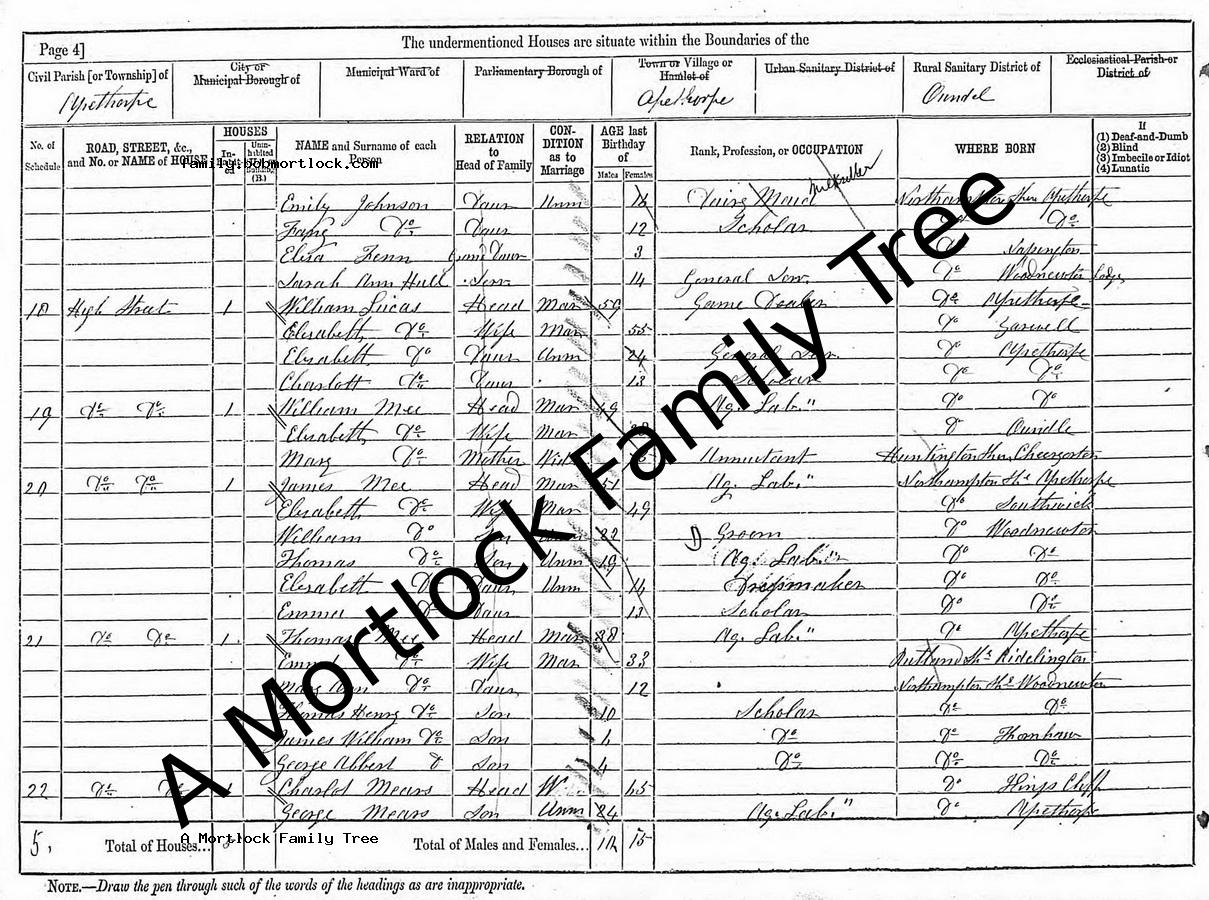 Page 4]
The undermentioned Houses are situate within the Boundaries of the
Civil Parish [or Township] of
City or Municipal Borough of
Municipal Ward of
Parliamentary Borough of
Town or Village or Hamlet of
Urban Sanitary District of
Rural Sanitary District of
Ecclesiastical Parish or District of
Apethorpe
Apethorpe
Oundel
No. of Schedule
ROAD, STREET, &c., and No. or NAME of HOUSE
HOUSES
NAME and Surname of each Person
RELATION to Head of Family
CONDITION as to Marriage
AGE last Birthday of
Males Females
Rank, Profession, or OCCUPATION
WHERE BORN
If
(1) Deaf-and-Dumb
(2) Blind
(3) Imbecile or Idiot
(4) Lunatic
family.bobmortlock.com
Emily Johnson Daur Unm 16 Dairy Maid Northamptonshire Apethorpe
Fany Do Daur 12 Scholar Do Do
Elisa Fenn Grand Daur 3 Do
Sarah Ann Hull Serv 14 General Serv. Do Woodnewton Lodge
18 High Street 1 William Lucas Head Mar 59 Game Dealer Do Apethorpe
Elisabeth Do Wife Mar 55 Do Yarwell
Elisabeth Do Daur Unm 24 General Ser. Do Apethorpe
Charlott Do Daur 13 Scholar Do Do
19 Do Do 1 William Mee Head Mar 49 Ag. Lab." Do Do
Elisabeth Do Wife Mar Do Oundle
Mary Do Mother Wid Annuitant
20 Do Do 1 James Mee Head Mar 51 Ag. Lab." Northampton Shr Apethorpe
Elisabeth Do Wife Mar 49 Do Southwick
William Do Son Unm 22 Groom Do Woodnewton
Thomas Do Son Unm 19 Ag. Lab." Do Do
Elisabeth Do Daur Unm 14 Dressmaker Do Do
Emma Do Daur 13 Scholar Do Do
21 Do Do 1 Thomas Mee Head Mar 38 Ag. Lab." Do Apethorpe
Emma Do Wife Mar 33 Rutland Shr Ridelington
Mary Ann Do Daur 12 Northampton Shr Woodnewton
Thomas Henry Do Son 10 Scholar Do Do
James William Do Son 6 Do Do Thornhaw
George Albert Do Son 4 Do Do Do
22 Do Do 1 Charlot Mears Head W 65 Do Kings Cliff
George Mears Son Unm 24 Ag. Lab." Do Apethorpe
5. Total of Houses... Total of Males and Females... 10 15
A Mortlock Family Tree
A Mortlock Family Tree
NOTE.—Draw the pen through such of the words of the headings as are inappropriate.